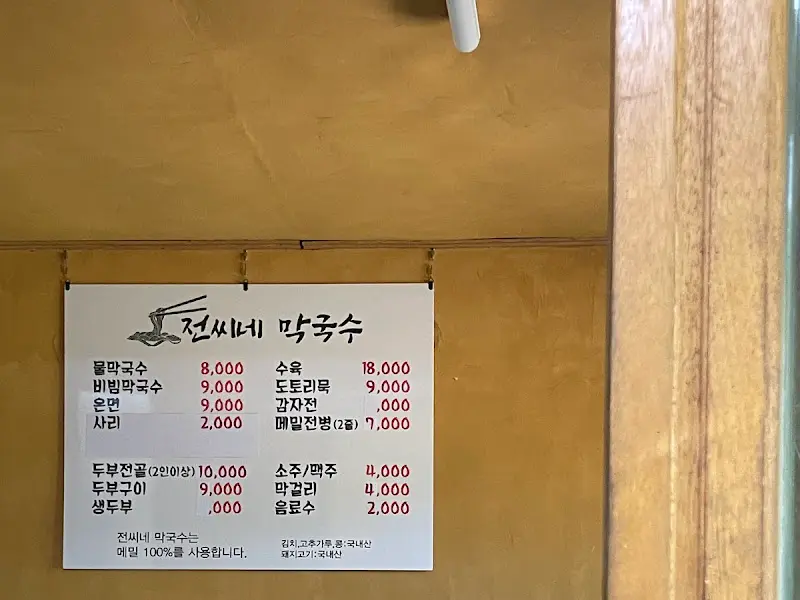 전씨네 막국수
물막국수 8,000
비빔막국수 9,000
온면 9,000
사리 2,000
두부전골(2인이상) 10,000
두부구이 9,000
생두부 ,000
수육 18,000
도토리묵 9,000
감자전 ,000
메밀전병(2줄) 7,000
소주/맥주 4,000
막걸리 4,000
음료수 2,000
전씨네 막국수는
메밀 100%를 사용합니다.
김치,고추가루,콩:국내산
돼지고기:국내산